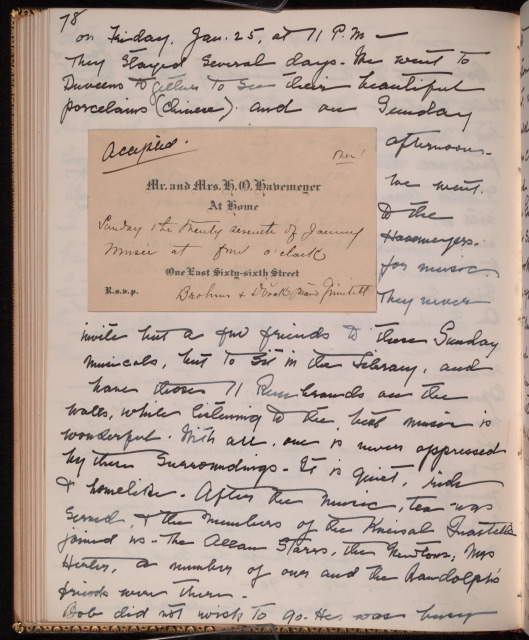 78
on Friday, Jan. 25, at 11 P.M —
They stayed several days. We went to
Duveens together to see their beautiful
porcelains (Chinese). and on Sunday
afternoon.
we went.
to the
Havemeyers.
for music
They never
Accepted.
Mr. and Mrs. H. O. Havemeyer
At Home
Sunday the twenty seventh of January
Music at four o'clock
One East Sixty-sixth Street
R.s.v.p.
Brahms &
invite but a few friends to these Sunday
musicals, but to sit in the Library, and
have those 11 Rembrandts on the
walls, while listening to the best music is
wonderful. With all, one is never oppressed
by these surroundings. It is quiet, rich
& homelike. After the music, tea was
served, & the members of the Kneisal Quartette
joined us - the Allan Starrs, the Newtons, Mrs
a number of ours and the Randolph's
friends were there.
Bob did not wish to go. He was busy